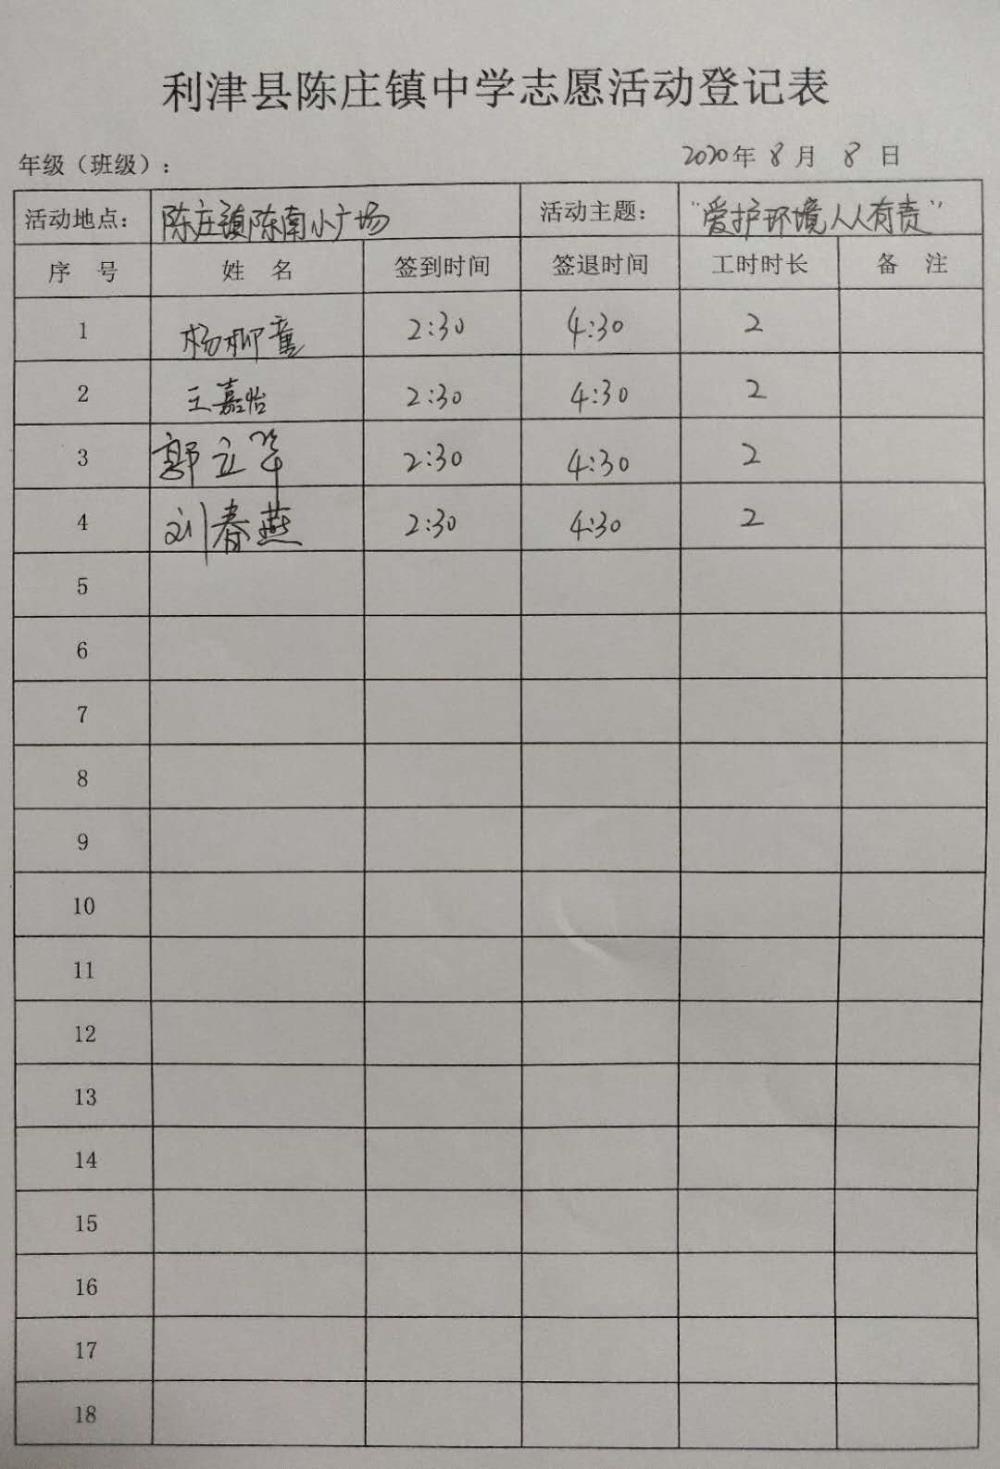 利津县陈庄镇中学志愿活动登记表
年级（班级）： 2020年 8 月 8 日
活动地点： 陈庄镇陈南小广场 活动主题： “爱护环境人人有责”
序 号 姓 名 签到时间 签退时间 工时时长 备 注
1 杨柳童 2:30 4:30 2
2 王嘉怡 2:30 4:30 2
3 郭立华 2:30 4:30 2
4 刘春燕 2:30 4:30 2
5
6
7
8
9
10
11
12
13
14
15
16
17
18